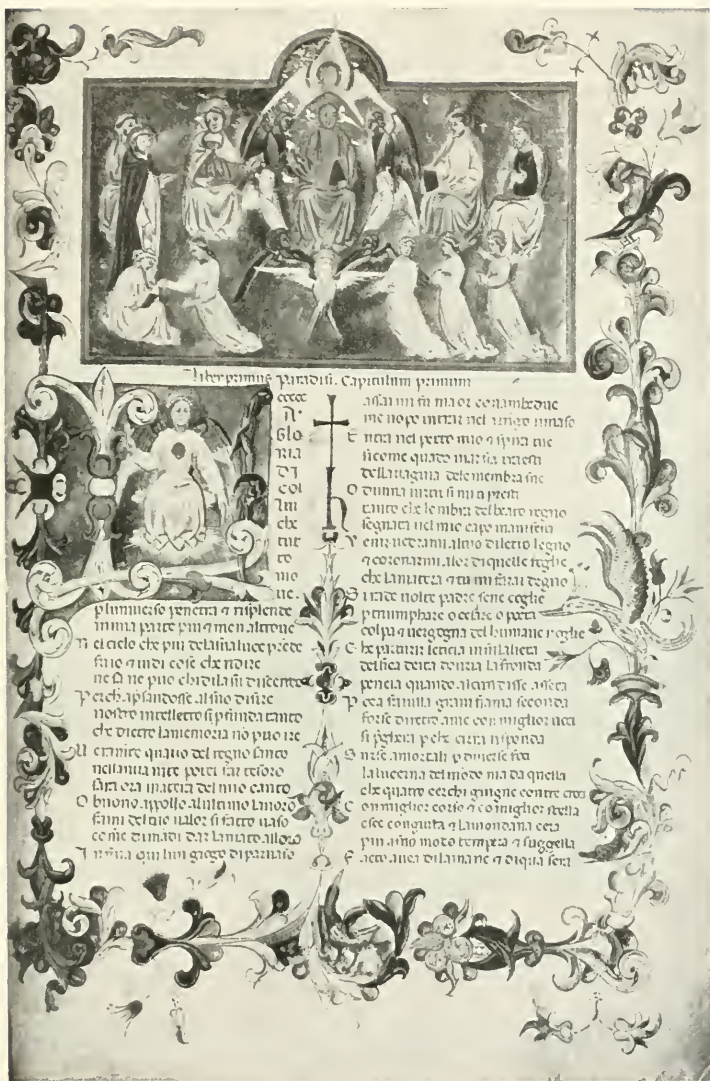 Liber primus Paradisi. Capitulum primum
A
GLO
RIA
DI
COL
IM
che
tut
to
mo
ue.
p luniuerso penetra ⁊ risplende
in una parte piu ⁊ men altroue
N el cielo che piu dela sua luce prede
fu io ⁊ uidi cose che ridire
ne sa ne puo chi di la su discende
P erch apsandosse al suo disire
nostro intelletto si pfunda tanto
che dietro la memoria no puo ire
U eramte quato del regno santo
nella mia mte potei far tesoro
sara ora materia del mio canto
O buono appollo alultimo lauoro
fami del tuo ualor si fatto uaso
come dimadi dar lamato alloro
I nfina qui lun giogo di parnaso
assai mi fu ma or con ambedue
me nopo intrar nel aringo rimaso
E ntra nel petto mio ⁊ spira tue
si come quado marsia traesti
della uagina dele membra sue
O diuina uirtu si mi ti presti
tanto che lombra del beato regno
segnata nel mio capo manifesti
U enir uedrami al tuo diletto legno
⁊ coronarmi alor di quelle foglie
che la matera ⁊ tu mi farai degno
S i rade uolte padre sene coglie
p triumphare o cesare o poeta
colpa ⁊ uergogna del humane uoglie
C he parturir leticia in su la lieta
delfica deita douria la fronda
peneia quando alcun disse asseta
P oca fauilla gram fiama seconda
forse diretro ame con miglior uoci
si pghera p che cirra risponda
S urge amortali p diuerse foci
la lucerna del modo ma da quella
che quatro cerchi giugne con tre croci
C on miglior corso ⁊ co miglior stella
esce congiuta ⁊ la mondana cera
piu asuo modo tempera ⁊ suggella
F atto auea di la mane ⁊ di qua sera